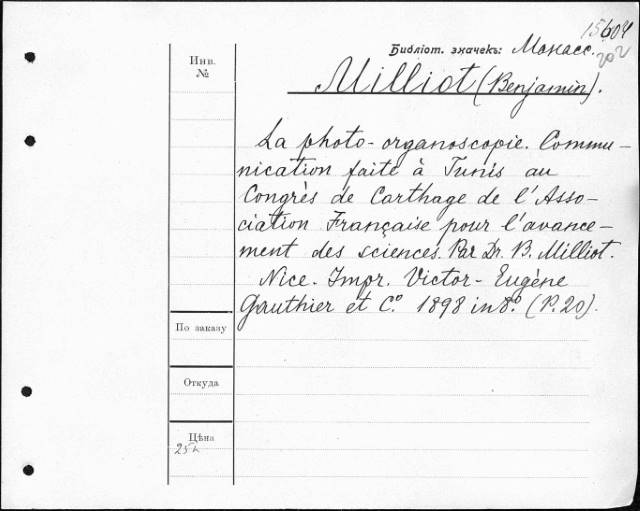 15604
Библіот. значекъ: Монасс.
202
Инв.
№
Milliot (Benjamin).
La photo-organoscopie. Commu-
nication faite à Tunis au
Congrès de Carthage de l'Asso-
ciation Française pour l'avance-
ment des sciences. Par Dr. B. Milliot.
Nice. Impr. Victor-Eugène
Gauthier et Cº. 1898 in 8º. (P. 20).
По заказу
Откуда
Цѣна